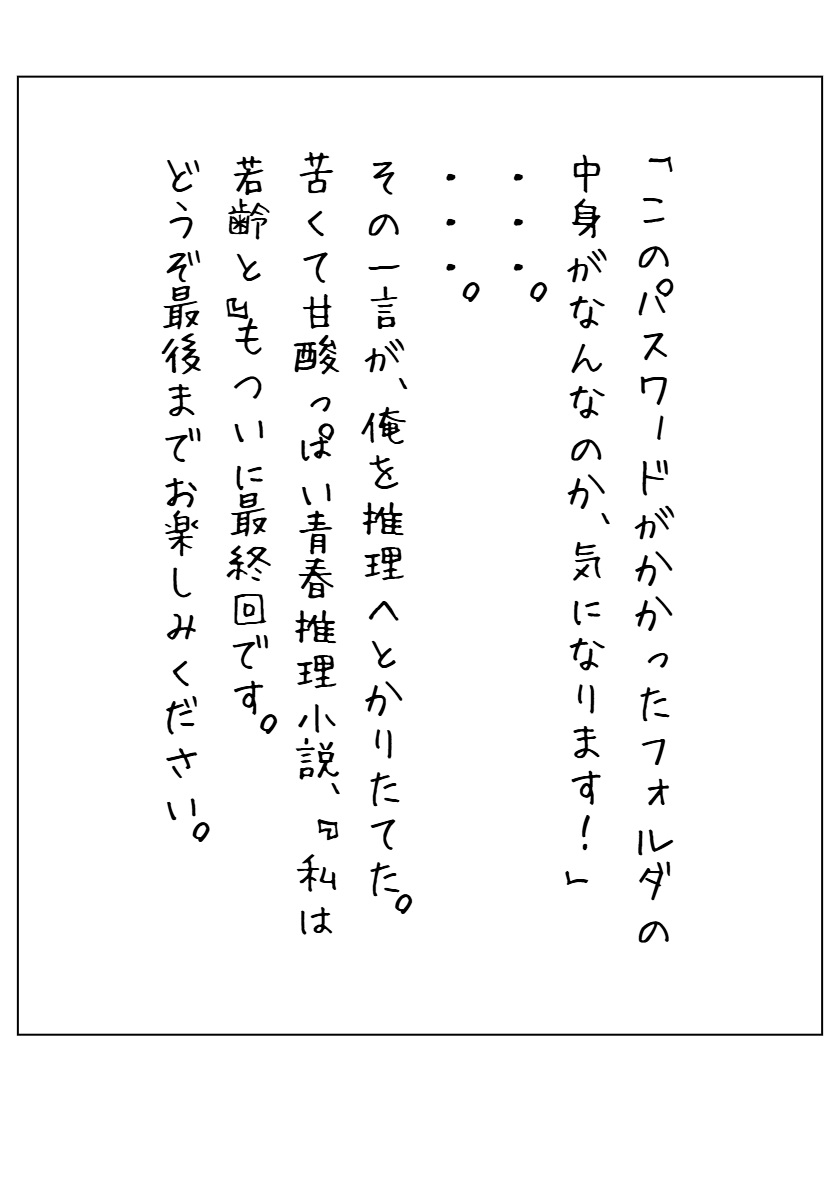 「このパスワードがかかったフォルダの
中身がなんなのか、気になります！」
・・・。
・・・。
その一言が、俺を推理へとかりたてた。
苦くて甘酸っぱい青春推理小説、『私は
若齢と』もついに最終回です。
どうぞ最後までお楽しみください。